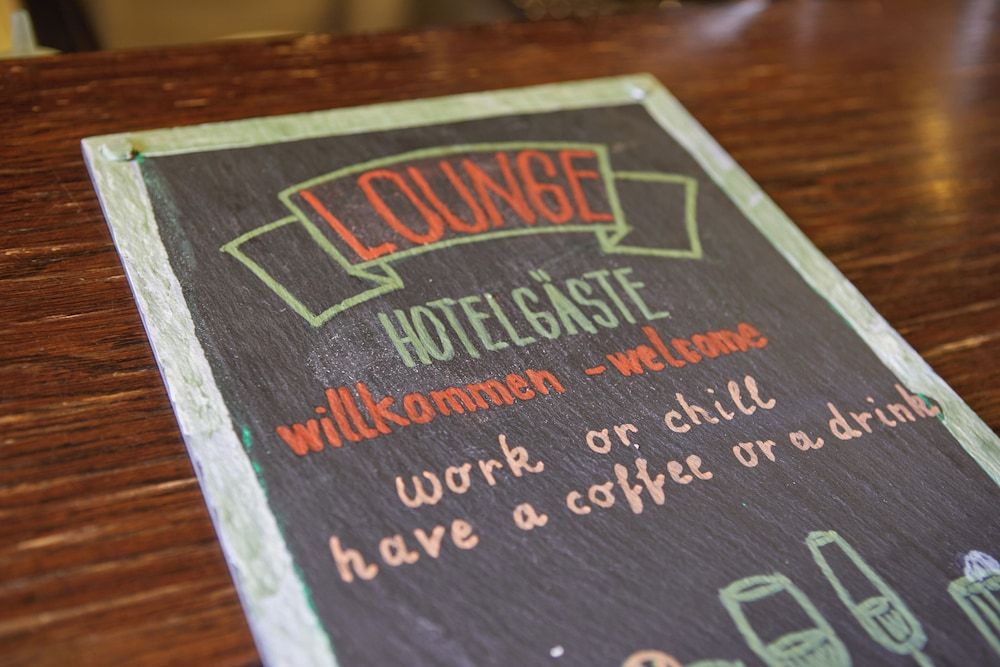 LOUNGE
HOTELGÄSTE
willkommen - welcome
work or chill
have a coffee or a drink